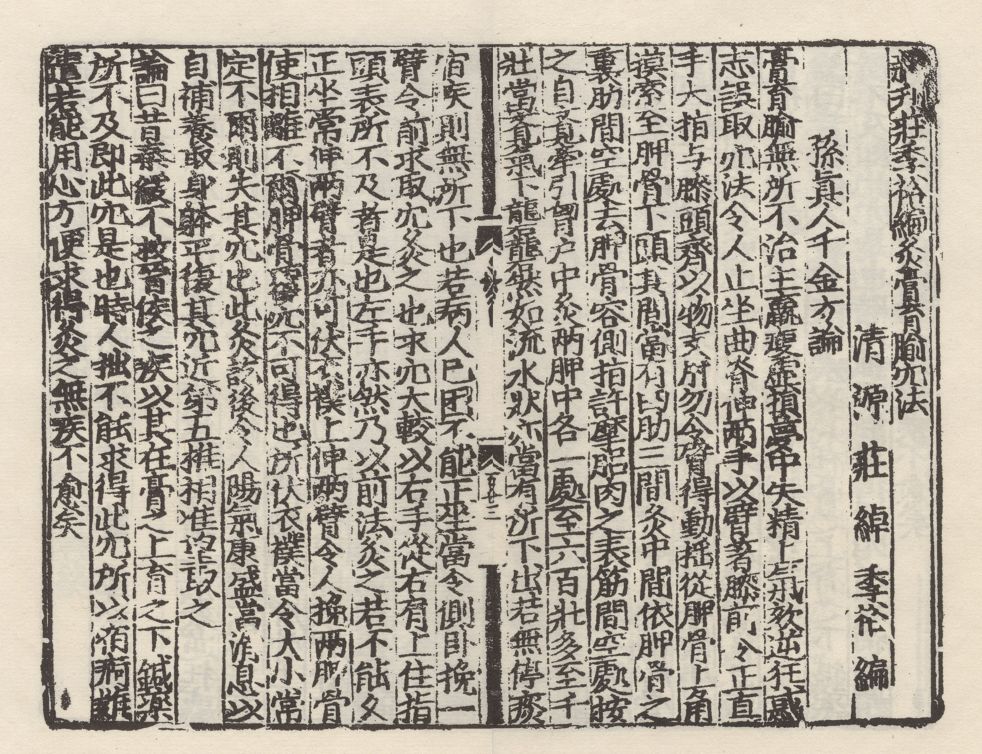 新刊莊季裕編灸膏肓腧穴法
清源莊綽季裕編
孫真人千金方論
膏肓腧無所不治主羸瘦虛損夢中失精上氣欬逆狂惑
志誤取穴法令人正坐曲脊伸兩手以臂著膝前令正直
手大指与膝頭齊以物支肘勿令臂得動搖從胛骨上角
摸索至胛骨下頭其間當有四肋三間灸中間依胛骨之
裏肋間空處去胛骨容側指許摩𦛗肉之表筋間空處按
之自覺牽引胷户中灸兩胛中各一處至六百壯多至千
壯當覺氣下礲礲然如流水狀亦當有所下出若無停痰
宿疾則無所下也若病人已困不能正坐當令側卧挽一
臂令前求取穴灸之也求穴大較以右手從右肩上住指
頭表所不及者是也左手亦然乃以前法灸之若不能久
正坐當伸兩臂者亦可伏衣襆上伸兩臂令人挽兩胛骨
使相離不爾胛骨覆穴不可得也所伏衣襆當令大小常
定不爾則失其穴也此灸訖後令人陽氣康盛當消息以
自補養取身躰平復其穴近第五椎相准望取之
論曰昔秦緩不救晉侯之疾以其在膏之上肓之下鍼藥
所不及即此穴是也時人拙不能求得此穴所以宿痾難
遣若能用心方便求得灸之無疾不愈矣